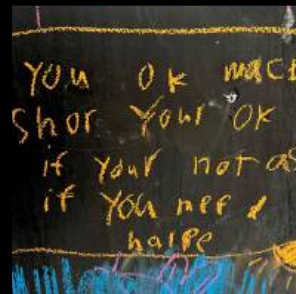 You Ok mack
Shor Your Ok
if Your not as
if You need
halpe